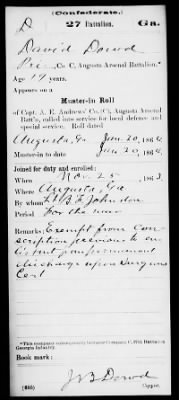 (Confederate.)
D 27 Battalion. Ga.
David Dowd
Pvt, Co. C, Augusta Arsenal Battalion.*
Age 19 years.
Appears on a
Muster-in Roll
of Capt. A. E. Andrews' Co. (C), Augusta Arsenal
Batt'n, called into service for local defence and
special service. Roll dated
Augusta, Ga Jan. 20, 1864
Muster-in to date Jan 20, 1864.
Joined for duty and enrolled:
When Nov. 25, 1863.
Where Augusta, Ga
By whom Lt B. F. Johnston
Period For the war
Remarks: Exempt from Con-
scription previous to en-
permanent
discharge upon Surgeons
Cert
*This company subsequently became Company C, 27th Battalion
Georgia Infantry.
Book mark:
J B Dowd
(635) Copyist.